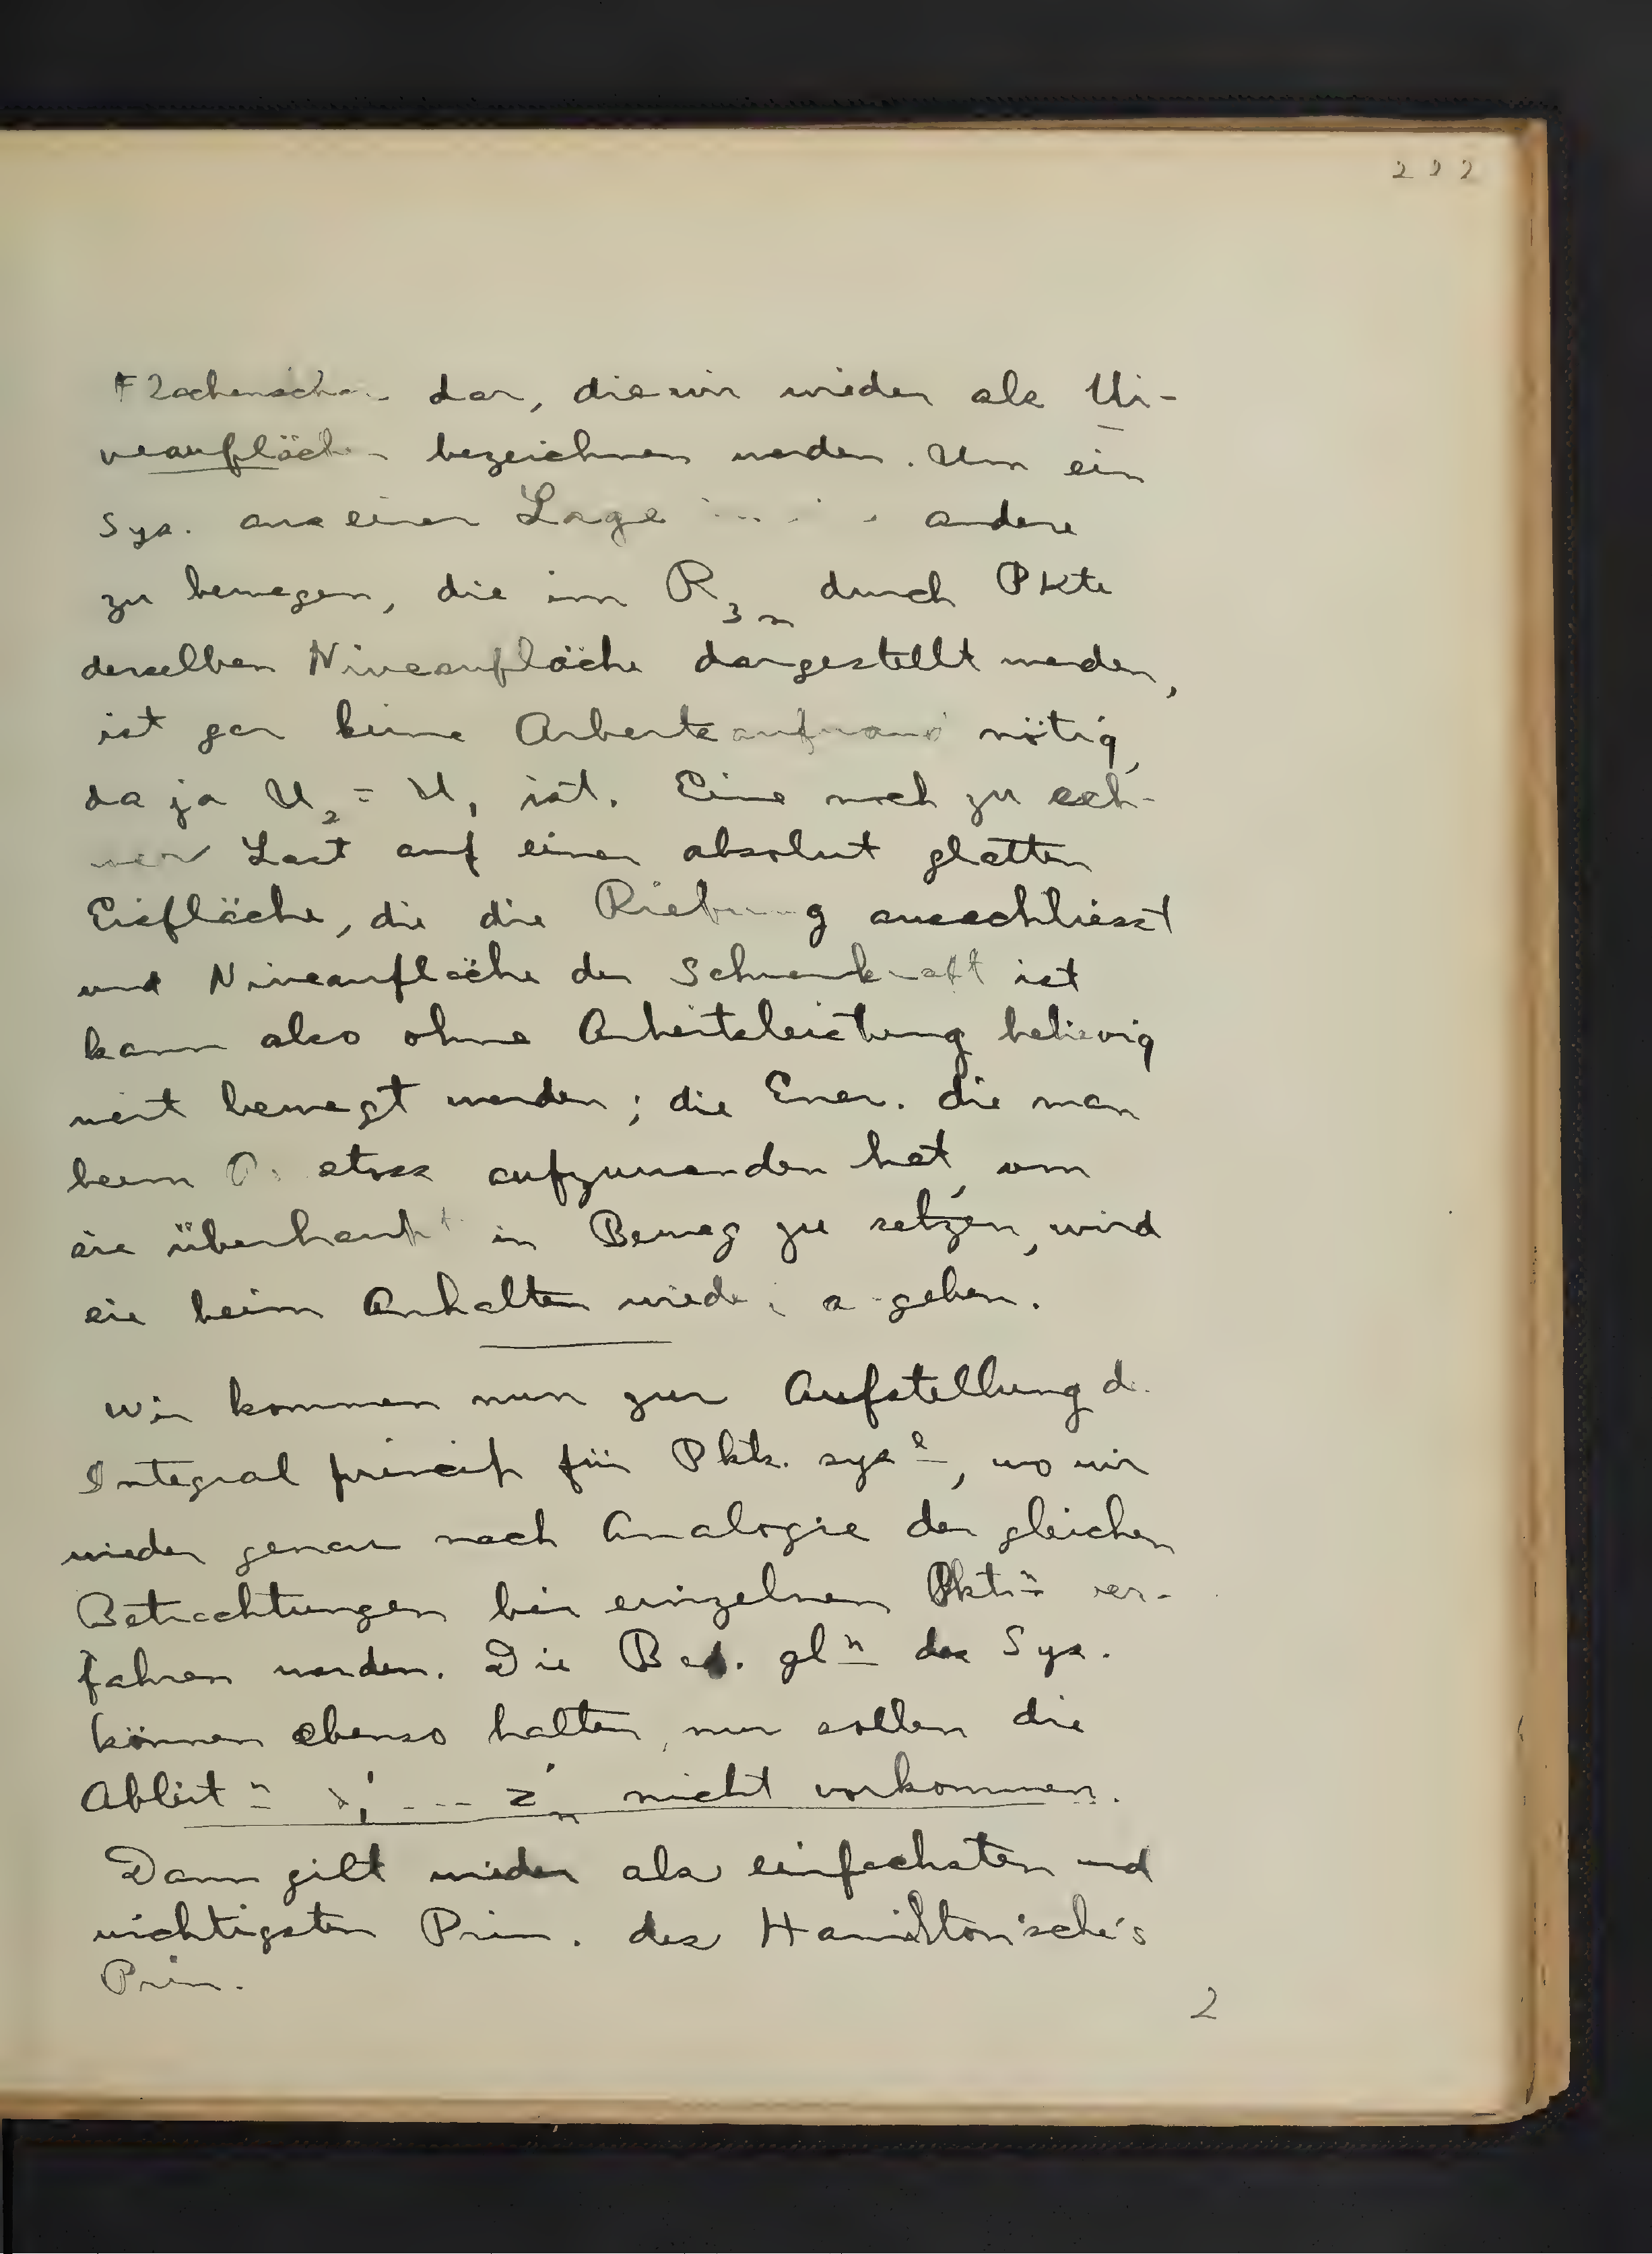 222
Flächenschar dar, die wir wieder als Ni-
veaufläche bezeichnen werden. Um ein
Sys. aus einer Lage andere
zu bewegen, die im R₃ₙ durch Pkte
derselben Niveaufläche dargestellt werden,
ist gar keine Arbeitsaufwand nötig,
da ja U₂ = U₁ ist. Eine noch zu sch-
were Last auf einer absolut glatten
Eisfläche, die die Riebung ausschliesst
und Niveaufläche der Schwerkraft ist
kann also ohne Arbeitsleistung beliebig
weit bewegt werden; die Ener. die man
beim stoss aufzuwenden hat, um
sie überhaupt in Beweg zu setzen, wird
sie beim Anhalten wieder geben.
Wir kommen nun zur Aufstellung d.
Integral princip für Pkts. sysᵉ, wo wir
wieder genau nach Analogie der gleichen
Betrachtungen bei einzelnen Pktⁿ ver-
fahren werden. Die Bed. glⁿ des Sys.
können ebenso halten, nur sollen die
Ableitⁿ x₁' --- zₙ' nicht vorkommen.
Dann gilt wieder als einfachsten und
wichtigsten Prin. des Hamilton'sche's
Prin.
2